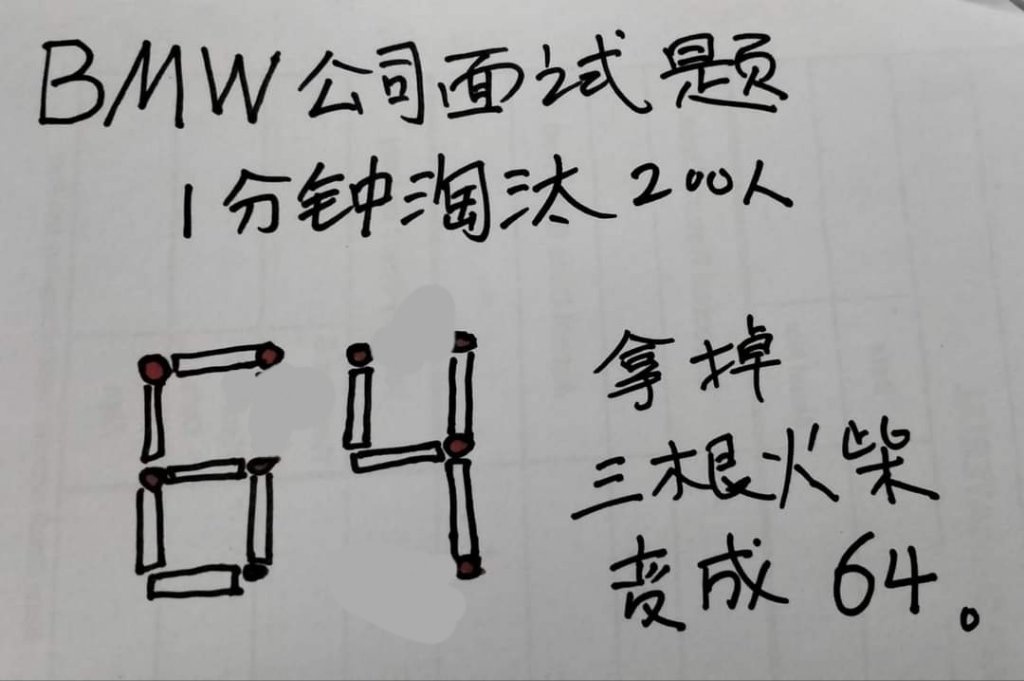 BMW公司面试题
1分钟淘汰200人
64
拿掉
三根火柴
变成64。